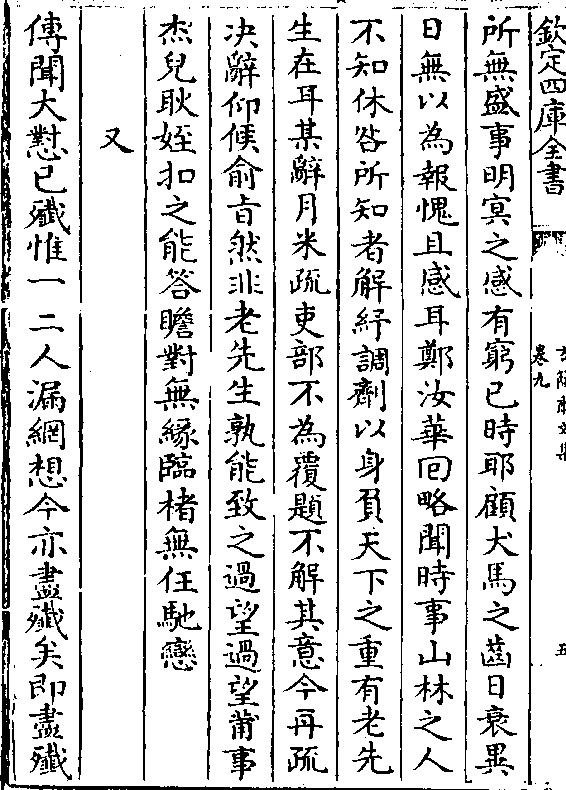 欽定四庫全書
卷九
五
所無盛事明冥之感有窮已時耶顧犬馬之齒日衰異
日無以為報愧且感耳鄭汝華回略聞時事山林之人
不知休咎所知者解紓調劑以身負天下之重有老先
生在耳某辭月米疏吏部不為覆題不解其意今再疏
決辭仰候俞㫖然非老先生孰能致之過望過望莆事
杰兒耿姪扣之能答瞻對無緣臨楮無任馳戀
又
傳聞大憝已殲惟一二人漏網想今亦盡殲矣即盡殲